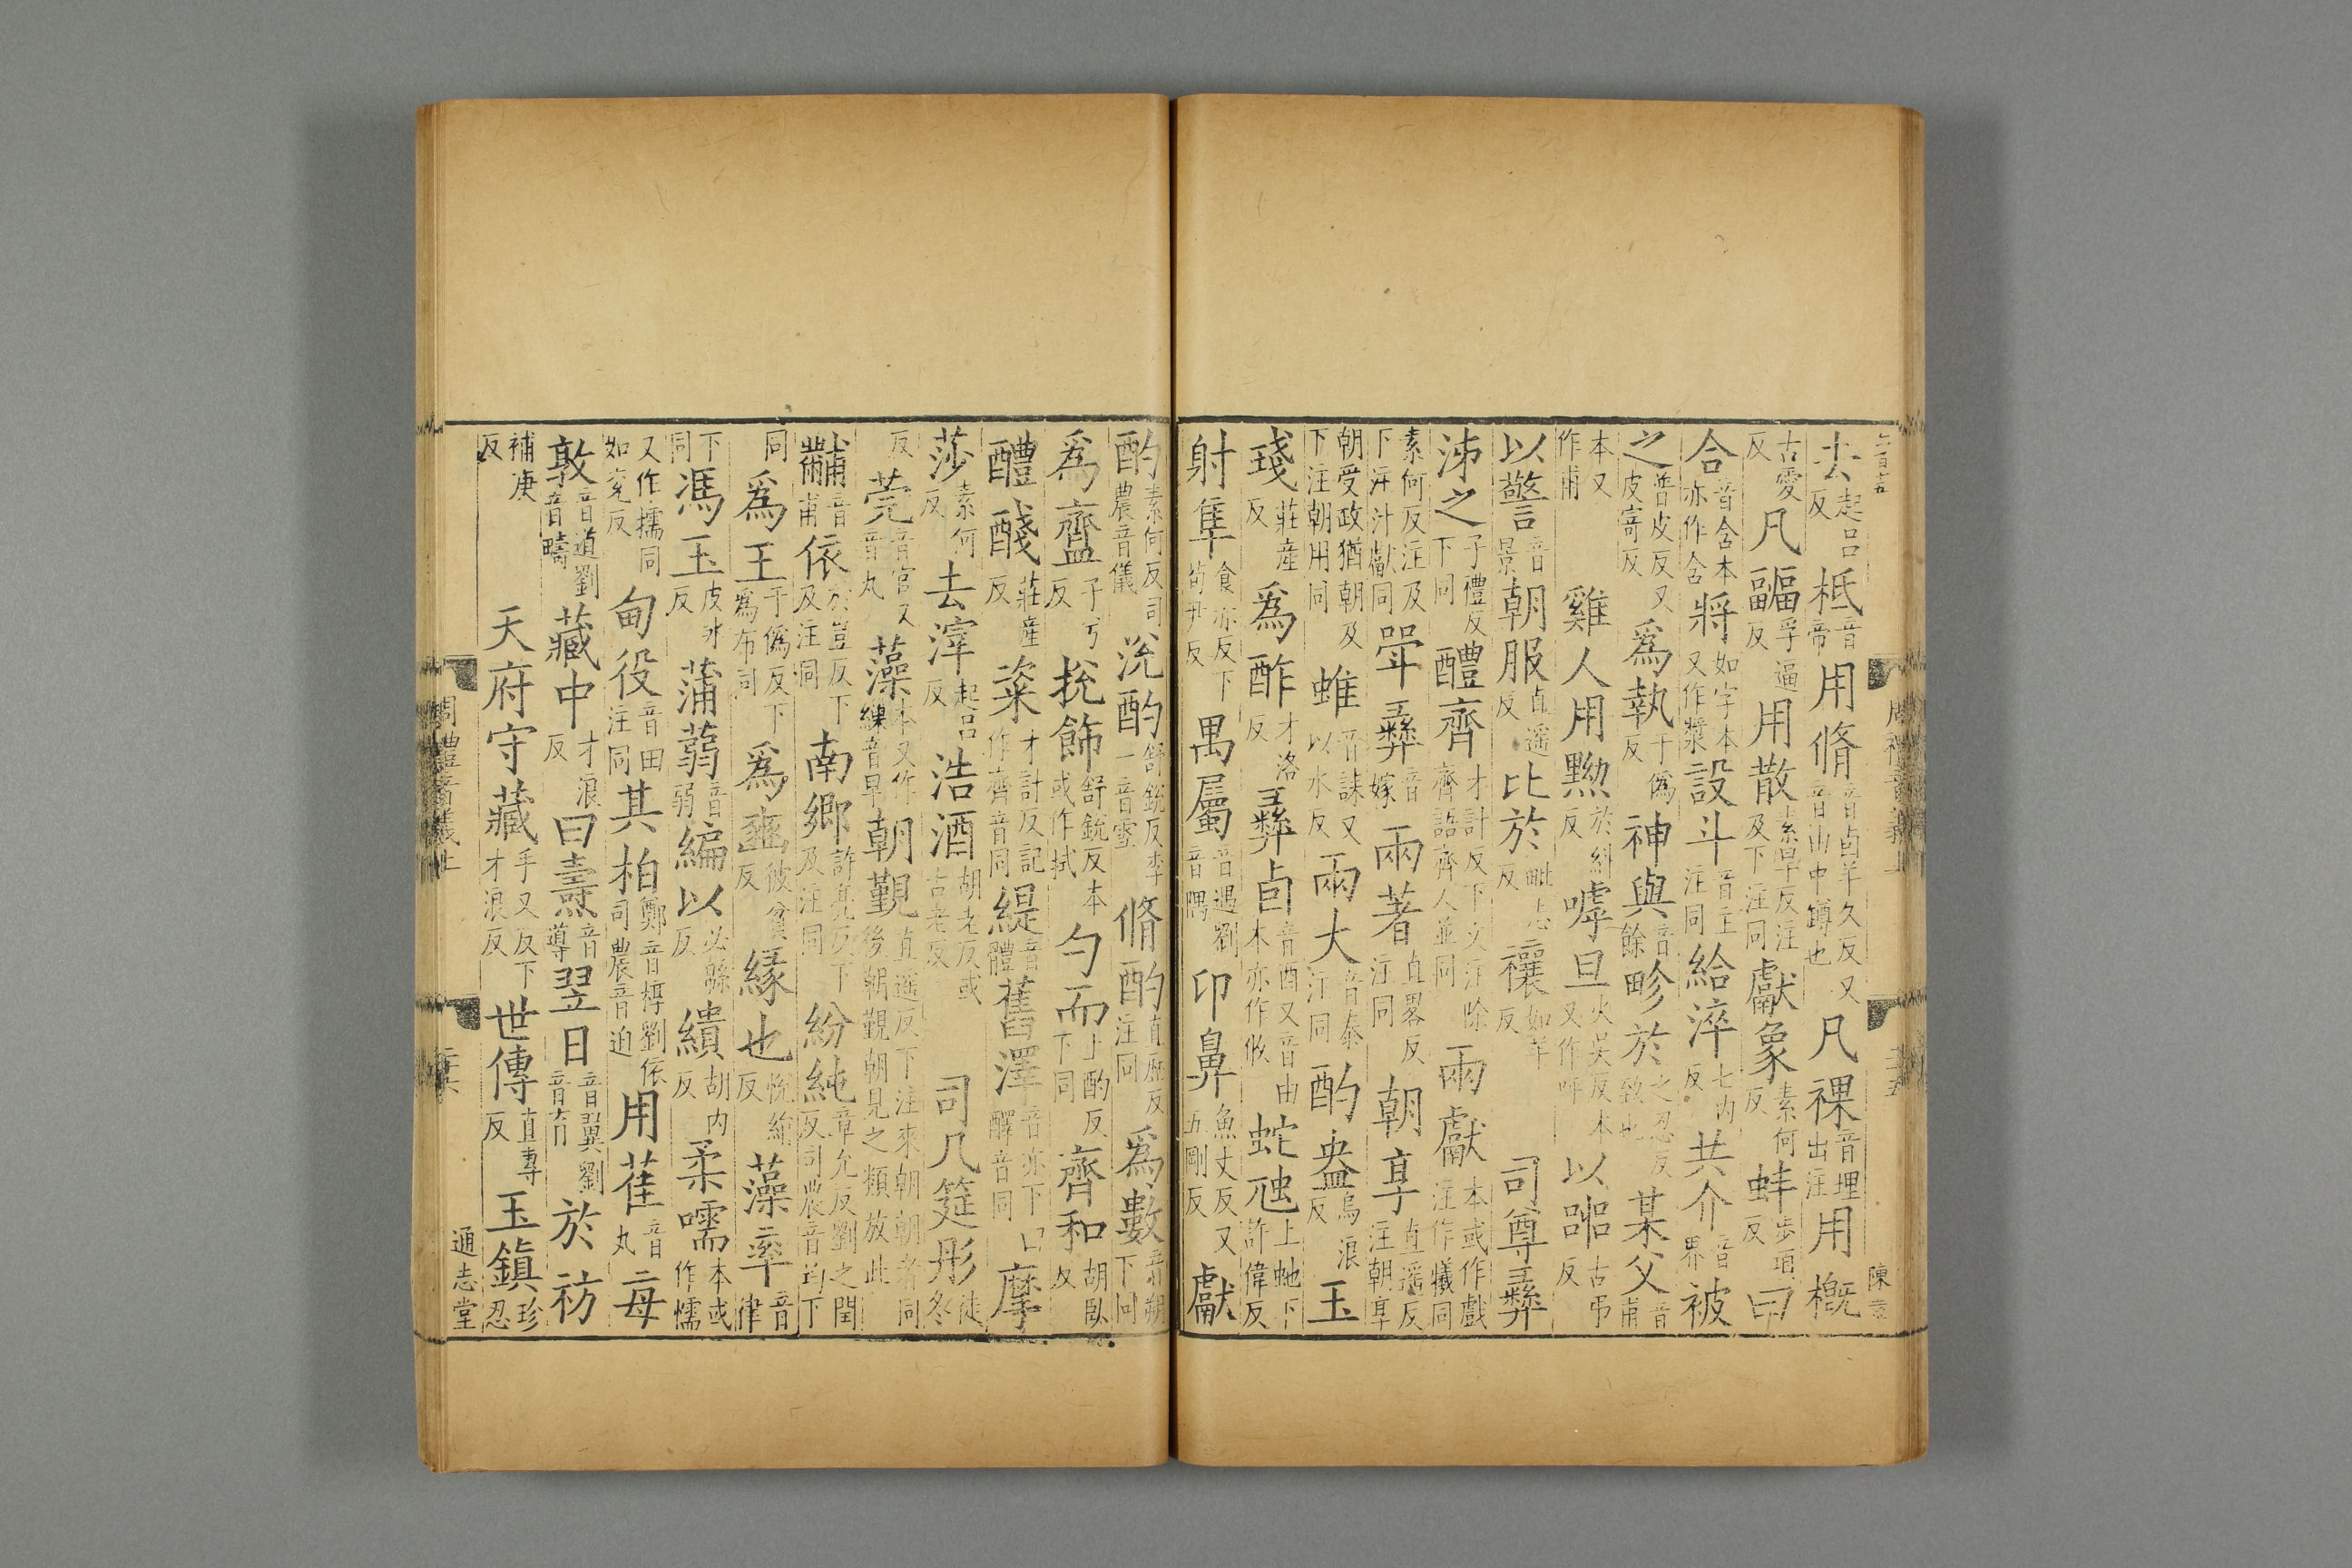 去起呂反柢音帝用脩音卣羊久反又音由中罇也凡祼音埋出注用概
古愛反凡疈孚逼反用散素旱反注及下注同獻象素何反蚌步項反曰
合音含本亦作含將如字本又作漿設斗音主注同給淬七內反共介音界被
之普皮反又皮寄反爲執于僞反神與音餘畛於之忍反致也某父音甫
本又作甫雞人用黝於糾反嘑旦火吳反本又作呼以嘂古弔反
以警音景朝服直遥反比於毗志反禳如羊反司尊彝
泲之子禮反下同醴齊才計反下文注除齊語齊人並同兩獻本或作戲注作犧同
素何反注及下注汁獻同斝彝音嫁兩著直略反注同朝享直遥反注朝享
朝受政猶朝及下注朝用同蜼音誄又以水反兩大音泰注同酌盎烏浪反玉
琖莊産反爲酢才洛反彝卣音酉又音由本亦作攸蛇虺上虵下許偉反
射隼食亦反下荀尹反禺屬音遇劉音隅卬鼻魚丈反又五剛反獻
酌素何反司農音儀涗酌舒銳反李一音雪脩酌直歷反注同爲數音朔下同
爲齍子兮反挩飾舒銳反本或作拭勺而上酌反下同齊和胡臥反
醴醆莊産反粢才計反記作齊音同緹音體舊澤音亦下醳音同摩
莎素何反去滓起呂反浩酒胡老反或古老反司几筵彤徒冬
反莞音官又音丸藻本又作繅音早朝覲直遥反下注來朝朝者同後朝覲朝見之類放此
黼音甫依於豈反下及注同南鄉許亮反下及注同紛純章允反劉之閏反司農音均下
同爲王于僞反下爲布同爲豳彼貧反緣也悅絹反藻率音律
下同馮玉皮冰反蒲蒻音弱編以必緜反繢胡內反柔嚅本或作懦
又作擩同如兗反甸役音田注同其柏鄭音椁劉依司農音迫用萑音丸每
敦音道劉音疇藏中才浪反曰燾音導翌日音翼劉音育於祊
補庚反天府守藏手又反下才浪反世傳直專反玉鎮珍忍
通志堂